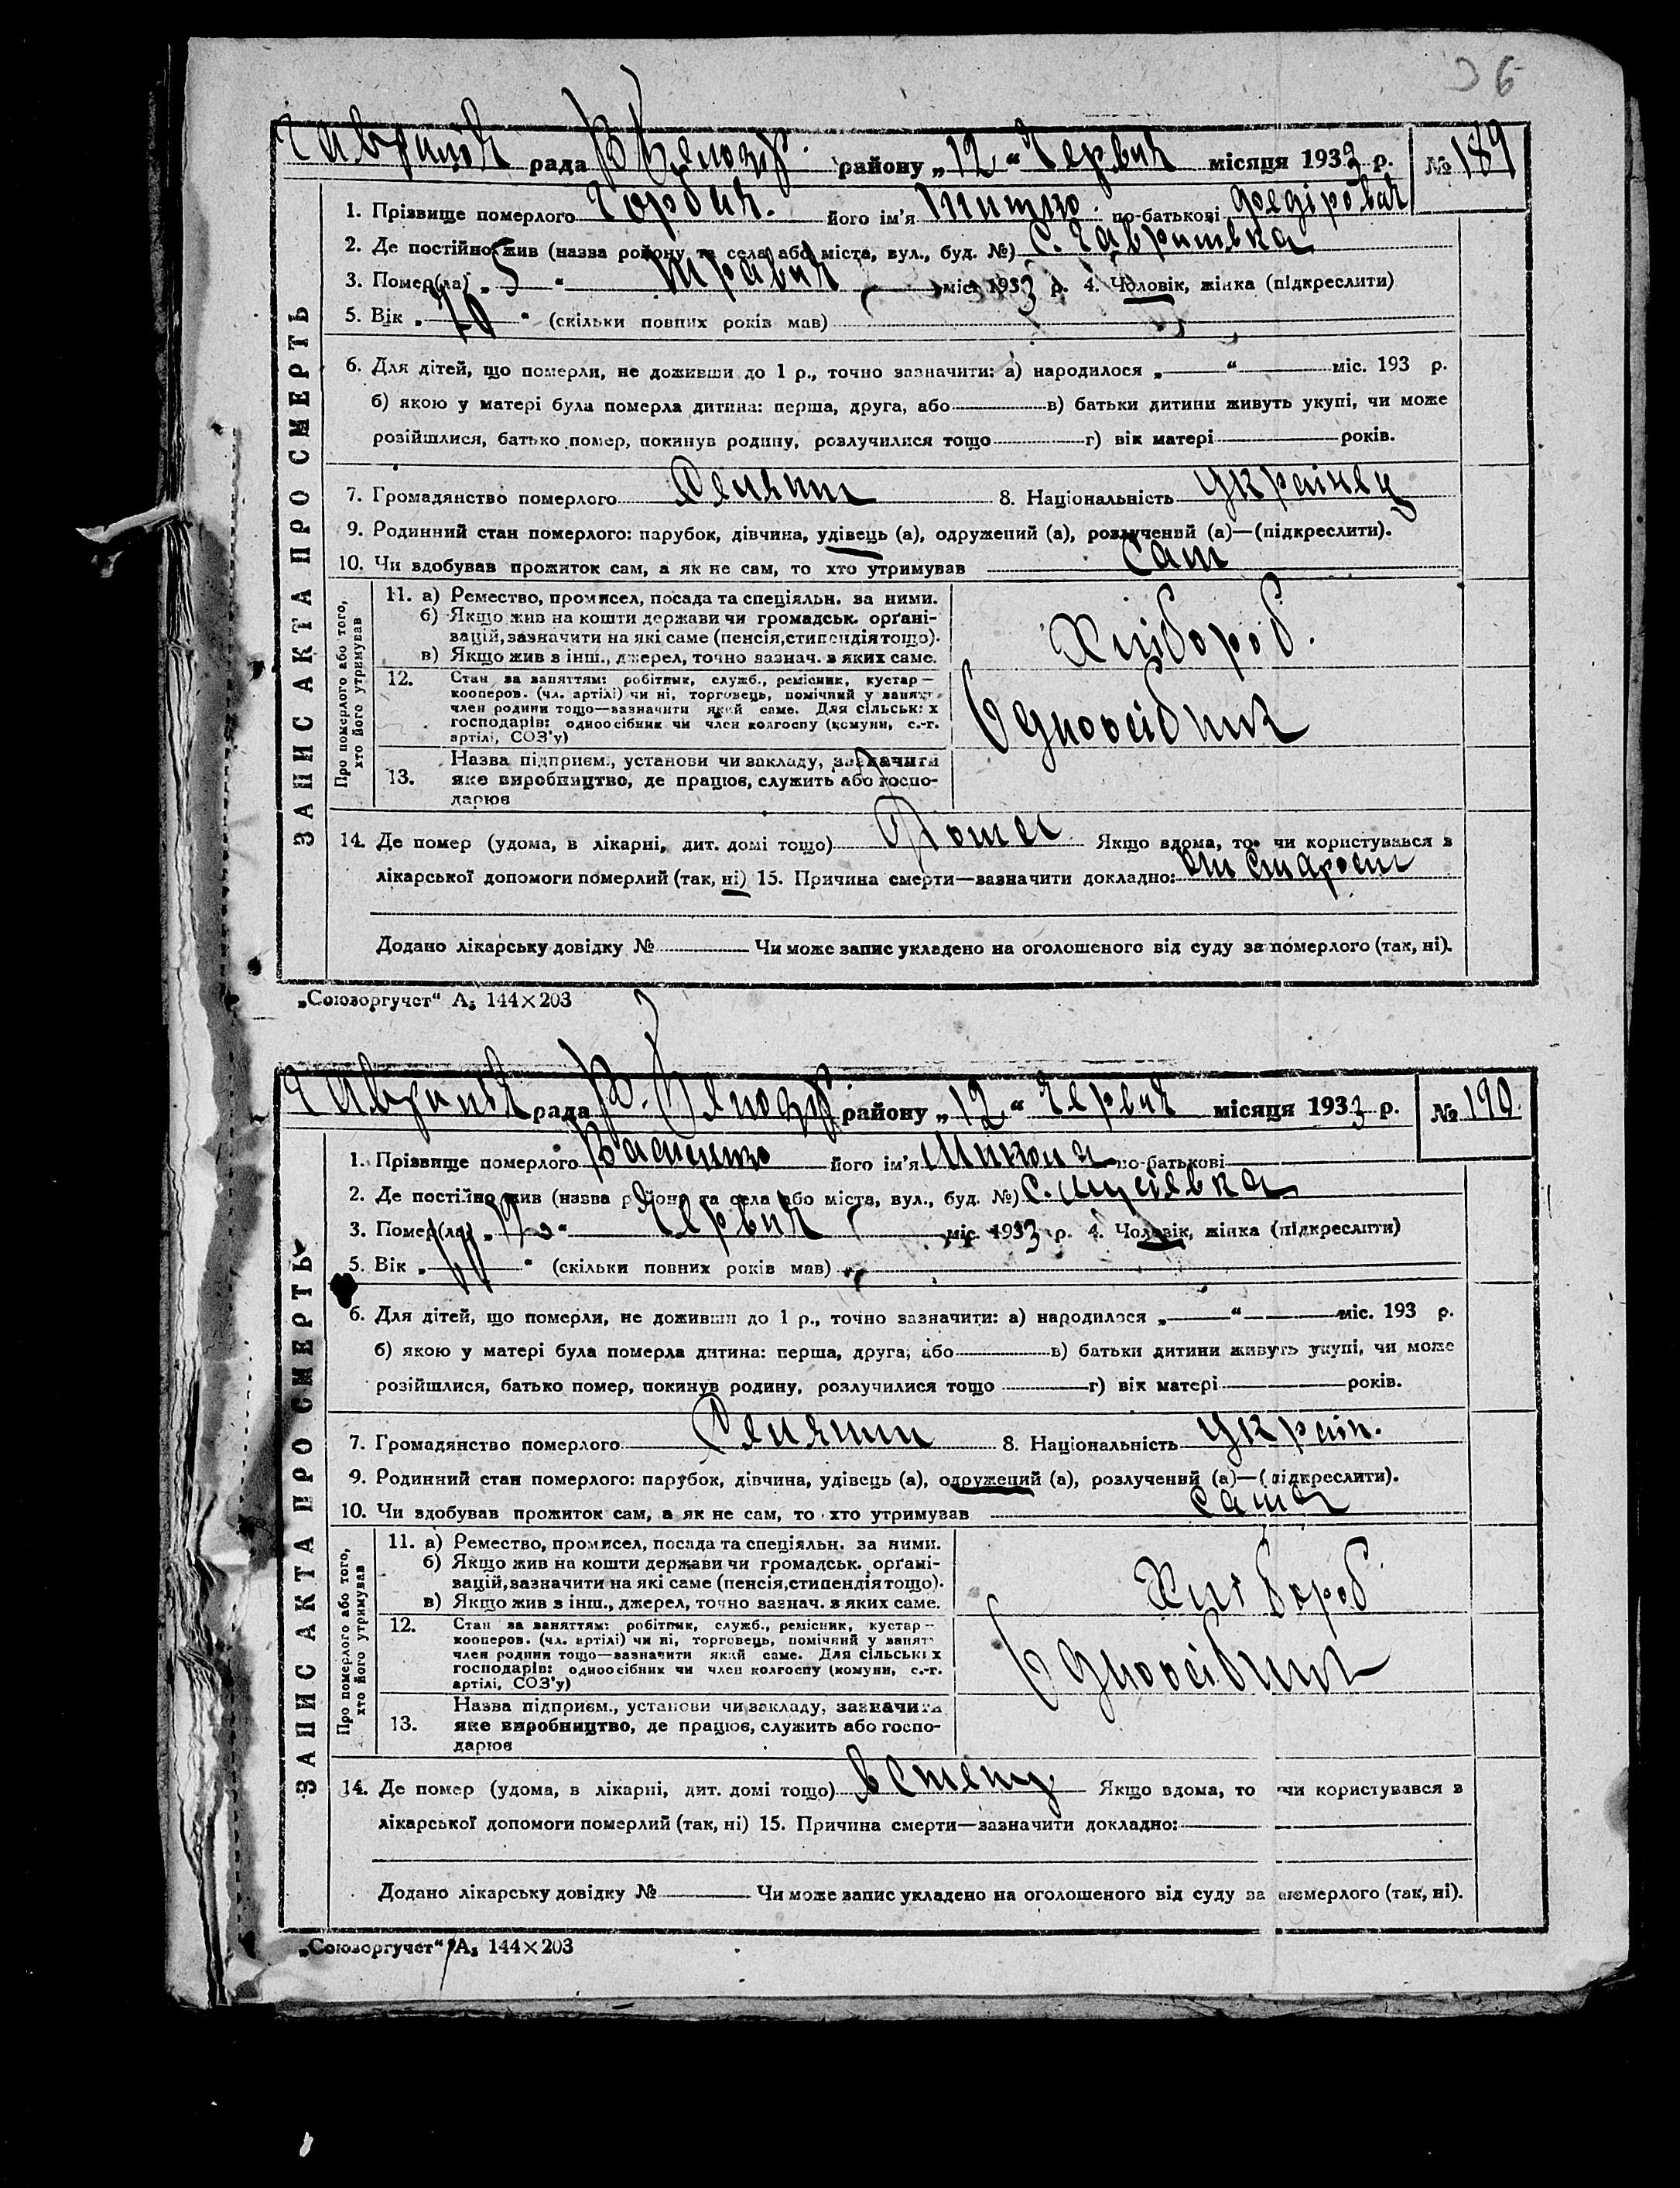 36
рада В Білозір. району „12“ Червня місяця 1933 р. № 189
ЗАПИС АКТА ПРО СМЕРТЬ
1. Прізвище померлого Горбач. його ім'я по-батькові Федірович
2. Де постійно жив (назва району та села або міста, вул., буд. №) с. Гавришівка
3. Помер(ла) „5“ травня міс. 1933 р. 4. Чоловік, жінка (підкреслити)
5. Вік „70“ (скільки повних років мав)
6. Для дітей, що померли, не доживши до 1 р., точно зазначити: а) народилося „ “ міс. 193 р.
б) якою у матері була померла дитина: перша, друга, або в) батьки дитини живуть укупі, чи може
розійшлися, батько помер, покинув родину, розлучилися тощо г) вік матері років.
7. Громадянство померлого Селянин 8. Національність Українец
9. Родинний стан померлого: парубок, дівчина, удівець (а), одружений (а), розлучений (а)—(підкреслити).
10. Чи здобував прожиток сам, а як не сам, то хто утримував Сам
Про померлого або того, хто його утримував
11. а) Ремество, промисел, посада та спеціяльн. за ними.
б) Якщо жив на кошти держави чи громадськ. орґані-
зацій, зазначити на які саме (пенсія, стипендія тощо).
в) Якщо жив з інш., джерел, точно зазнач. з яких саме.
Хлібороб.
12. Стан за заняттям: робітник, служб., ремісник, кустар—
кооперов. (чл. артілі) чи ні, торговець, помічний у занятт.
член родини тощо—зазначити який саме. Для сільських
господарів: одноосібник чи член колгоспу (комуни, с.-г.
артілі, СОЗ'у)
Одноосібник
13. Назва підприєм., установи чи закладу, зазначити
яке виробництво, де працює, служить або госпо-
дарює
14. Де помер (удома, в лікарні, дит. домі тощо) Дома Якщо вдома, то чи користувався з
лікарської допомоги померлий (так, ні) 15. Причина смерти—зазначити докладно: от старости
Додано лікарську довідку № Чи може запис укладено на оголошеного від суду за померлого (так, ні).
„Союзоргучет“ А₅ 144×203
рада В. Білозір. району „12“ Червня місяця 1933 р. № 190.
ЗАПИС АКТА ПРО СМЕРТЬ
1. Прізвище померлого Василенко його ім'я Микола по-батькові
2. Де постійно жив (назва району та села або міста, вул., буд. №) с.
3. Помер(ла) Червня міс. 1933 р. 4. Чоловік, жінка (підкреслити)
5. Вік „ “ (скільки повних років мав)
6. Для дітей, що померли, не доживши до 1 р., точно зазначити: а) народилося „ “ міс. 193 р.
б) якою у матері була померла дитина: перша, друга, або в) батьки дитини живуть укупі, чи може
розійшлися, батько помер, покинув родину, розлучилися тощо г) вік матері років.
7. Громадянство померлого Селянин 8. Національність Україн.
9. Родинний стан померлого: парубок, дівчина, удівець (а), одружений (а), розлучений (а)—(підкреслити).
10. Чи здобував прожиток сам, а як не сам, то хто утримував
Про померлого або того, хто його утримував
11. а) Ремество, промисел, посада та спеціяльн. за ними.
б) Якщо жив на кошти держави чи громадськ. орґані-
зацій, зазначити на які саме (пенсія, стипендія тощо).
в) Якщо жив з інш., джерел, точно зазнач. з яких саме.
Хлібороб
12. Стан за заняттям: робітник, служб., ремісник, кустар—
кооперов. (чл. артілі) чи ні, торговець, помічний у занятт.
член родини тощо—зазначити який саме. Для сільських
господарів: одноосібник чи член колгоспу (комуни, с.-г.
артілі, СОЗ'у)
Одноосібник
13. Назва підприєм., установи чи закладу, зазначити
яке виробництво, де працює, служить або госпо-
дарює
14. Де помер (удома, в лікарні, дит. домі тощо) в степу Якщо вдома, то чи користувався з
лікарської допомоги померлий (так, ні) 15. Причина смерти—зазначити докладно:
Додано лікарську довідку № Чи може запис укладено на оголошеного від суду за померлого (так, ні).
„Союзоргучет“ А₅ 144×203